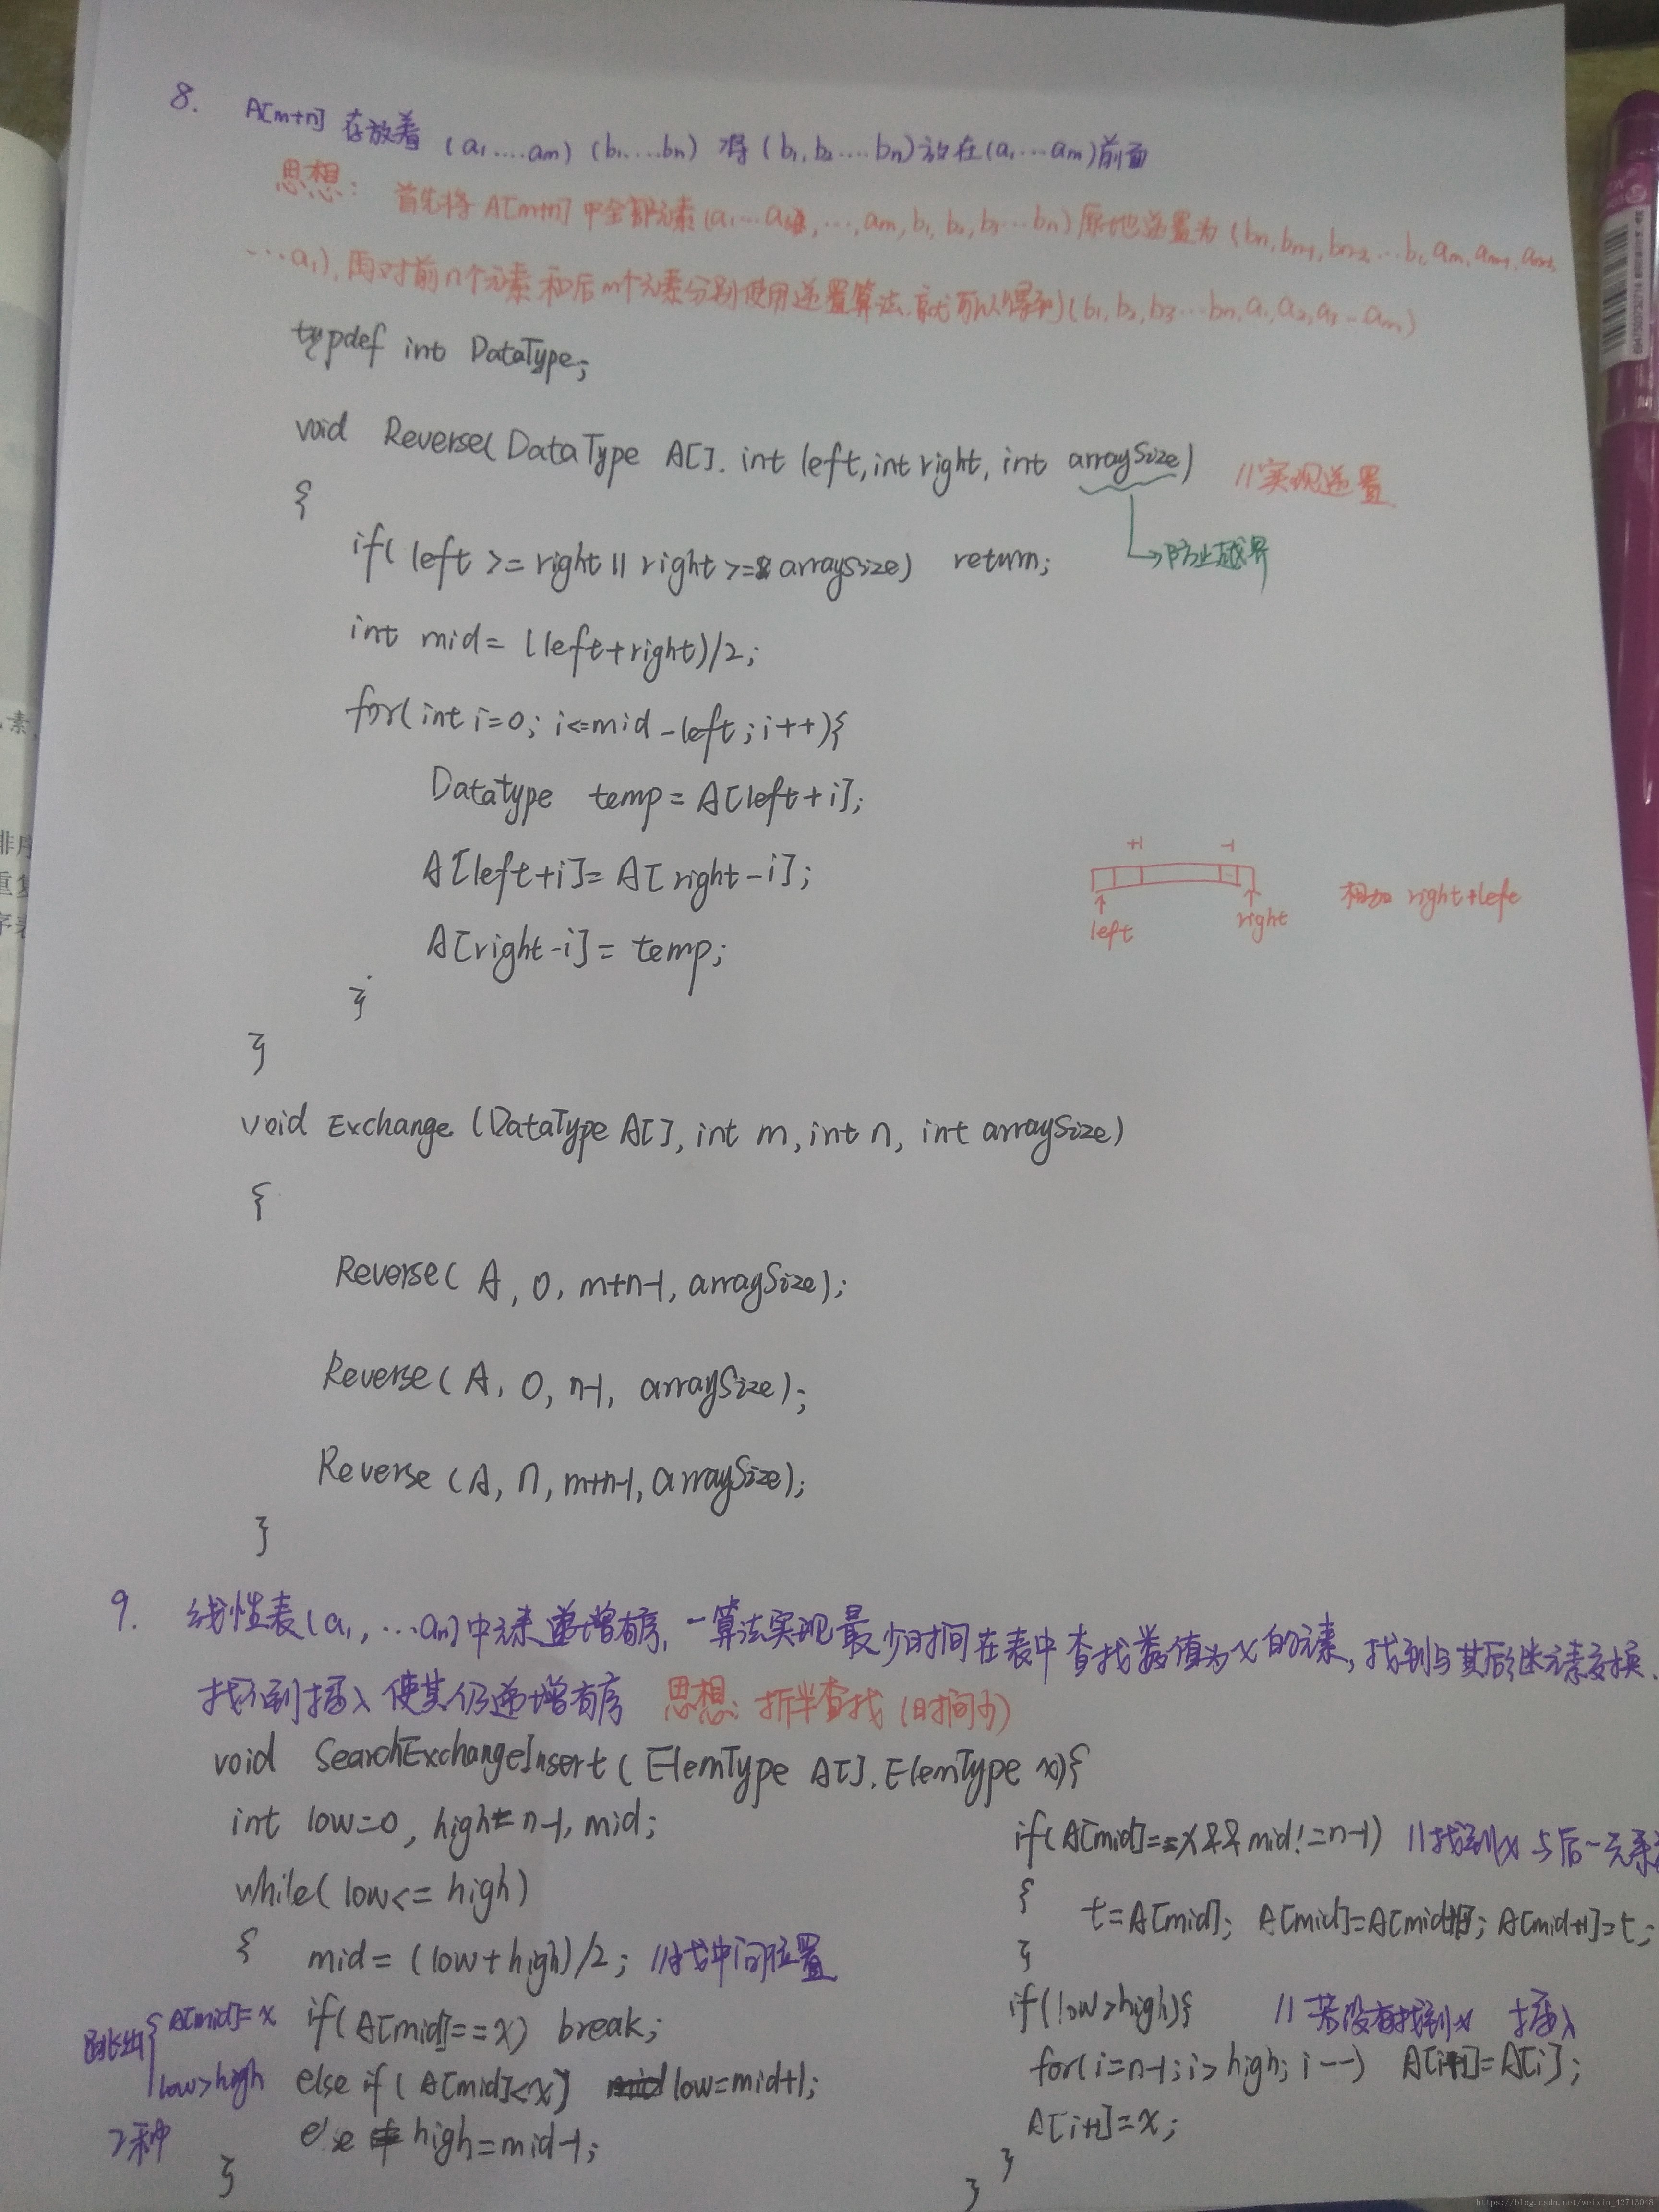 8. A[m+n] 存放着 (a₁....am) (b₁....bn) 将 (b₁,b₂....bn)放在(a₁...am)前面
思想: 首先将 A[m+n] 中全部元素(a₁...,...,am,b₁,b₂,b₃...bn)原地逆置为(bn,bn-1,bn-2,...b₁,am,am-1,am-2,
...a₁),再对前n个元素和后m个元素分别使用逆置算法,就可以得到(b₁,b₂,b₃...bn,a₁,a₂,a₃...am)
typdef int DataType;
void Reverse(DataType A[], int left,int right, int arraySize) //实现逆置
{
→防止越界
if( left >= right || right >= arraySize) return;
int mid= (left+right)/2;
for(int i=0; i<=mid-left; i++){
Datatype temp = A[left+i];
A[left+i]= A[right-i];
+1 -1
left right 相加 right+left
A[right-i]= temp;
}
}
void Exchange (DataType A[], int m, int n, int arraySize)
{
Reverse( A, 0, m+n-1, arraySize);
Reverse( A, 0, n-1, arraySize);
Reverse (A, n, m+n-1, arraySize);
}
9. 线性表(a₁,...am)中元素递增有序,一算法实现最少时间在表中查找数值为x的元素,找到与其后继元素交换,
找不到插入使其仍递增有序 思想: 折半查找 (时间少)
void SearchExchangeInsert( ElemType A[], ElemType x){
int low=0, high=n-1, mid;
while( low<= high)
{ mid = (low+high)/2; //找中间位置
跳出{ A[mid]=x if( A[mid]==x) break;
low>high else if( A[mid]<x) low=mid+1;
2种 else high=mid-1;
}
if(A[mid]==x && mid!=n-1) //找到x 与后一元素
{
t=A[mid]; A[mid]=A[mid+1]; A[mid+1]=t;
}
if(low>high){ //若没有找到x 插入
for(i=n-1;i>high; i--) A[i+1]=A[i];
A[i+1]=x;
}
}
https://blog.csdn.net/weixin_42713048